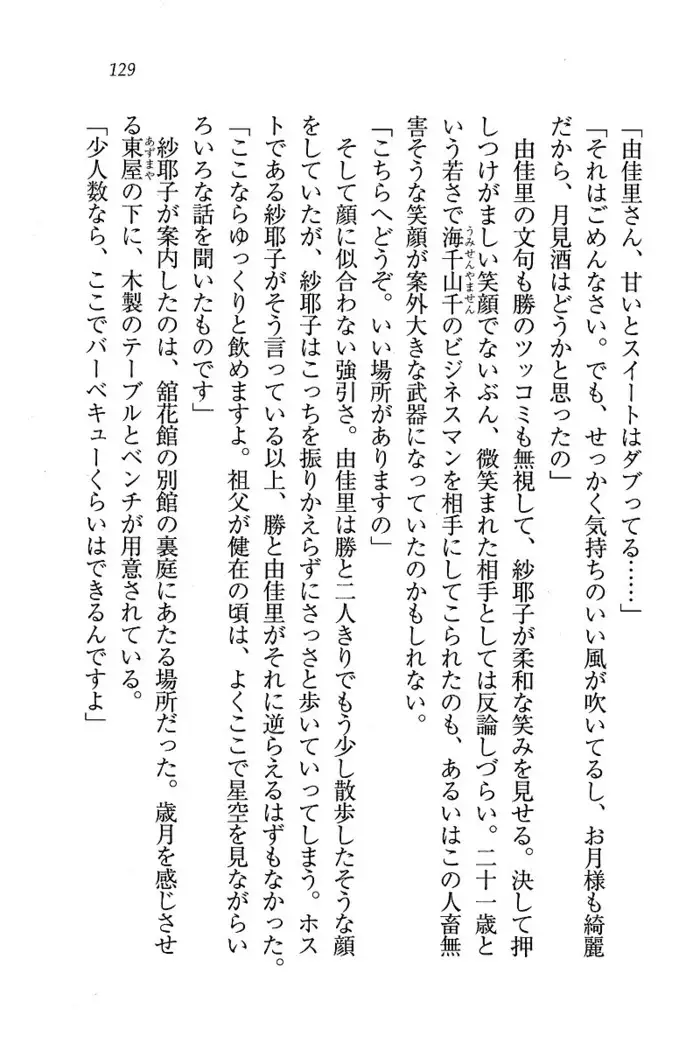 129
「由佳里さん、甘いとスイートはダブってる……」
「それはごめんなさい。でも、せっかく気持ちのいい風が吹いてるし、お月様も綺麗
だから、月見酒はどうかと思ったの」
由佳里の文句も勝のツッコミも無視して、紗耶子が柔和な笑みを見せる。決して押
しつけがましい笑顔でないぶん、微笑まれた相手としては反論しづらい。二十一歳と
いう若さで海千山千のビジネスマンを相手にしてこられたのも、あるいはこの人畜無
うみせんやません
害そうな笑顔が案外大きな武器になっていたのかもしれない。
「こちらへどうぞ。いい場所がありますの」
そして顔に似合わない強引さ。由佳里は勝と二人きりでもう少し散歩したそうな顔
をしていたが、紗耶子はこっちを振りかえらずにさっさと歩いていってしまう。ホス
トである紗耶子がそう言っている以上、勝と由佳里がそれに逆らえるはずもなかった。
「ここならゆっくりと飲めますよ。祖父が健在の頃は、よくここで星空を見ながらい
ろいろな話を聞いたものです」
紗耶子が案内したのは、舘花館の別館の裏庭にあたる場所だった。歳月を感じさせ
る東屋の下に、木製のテーブルとベンチが用意されている。
あずまや
「少人数なら、ここでバーベキューくらいはできるんですよ」